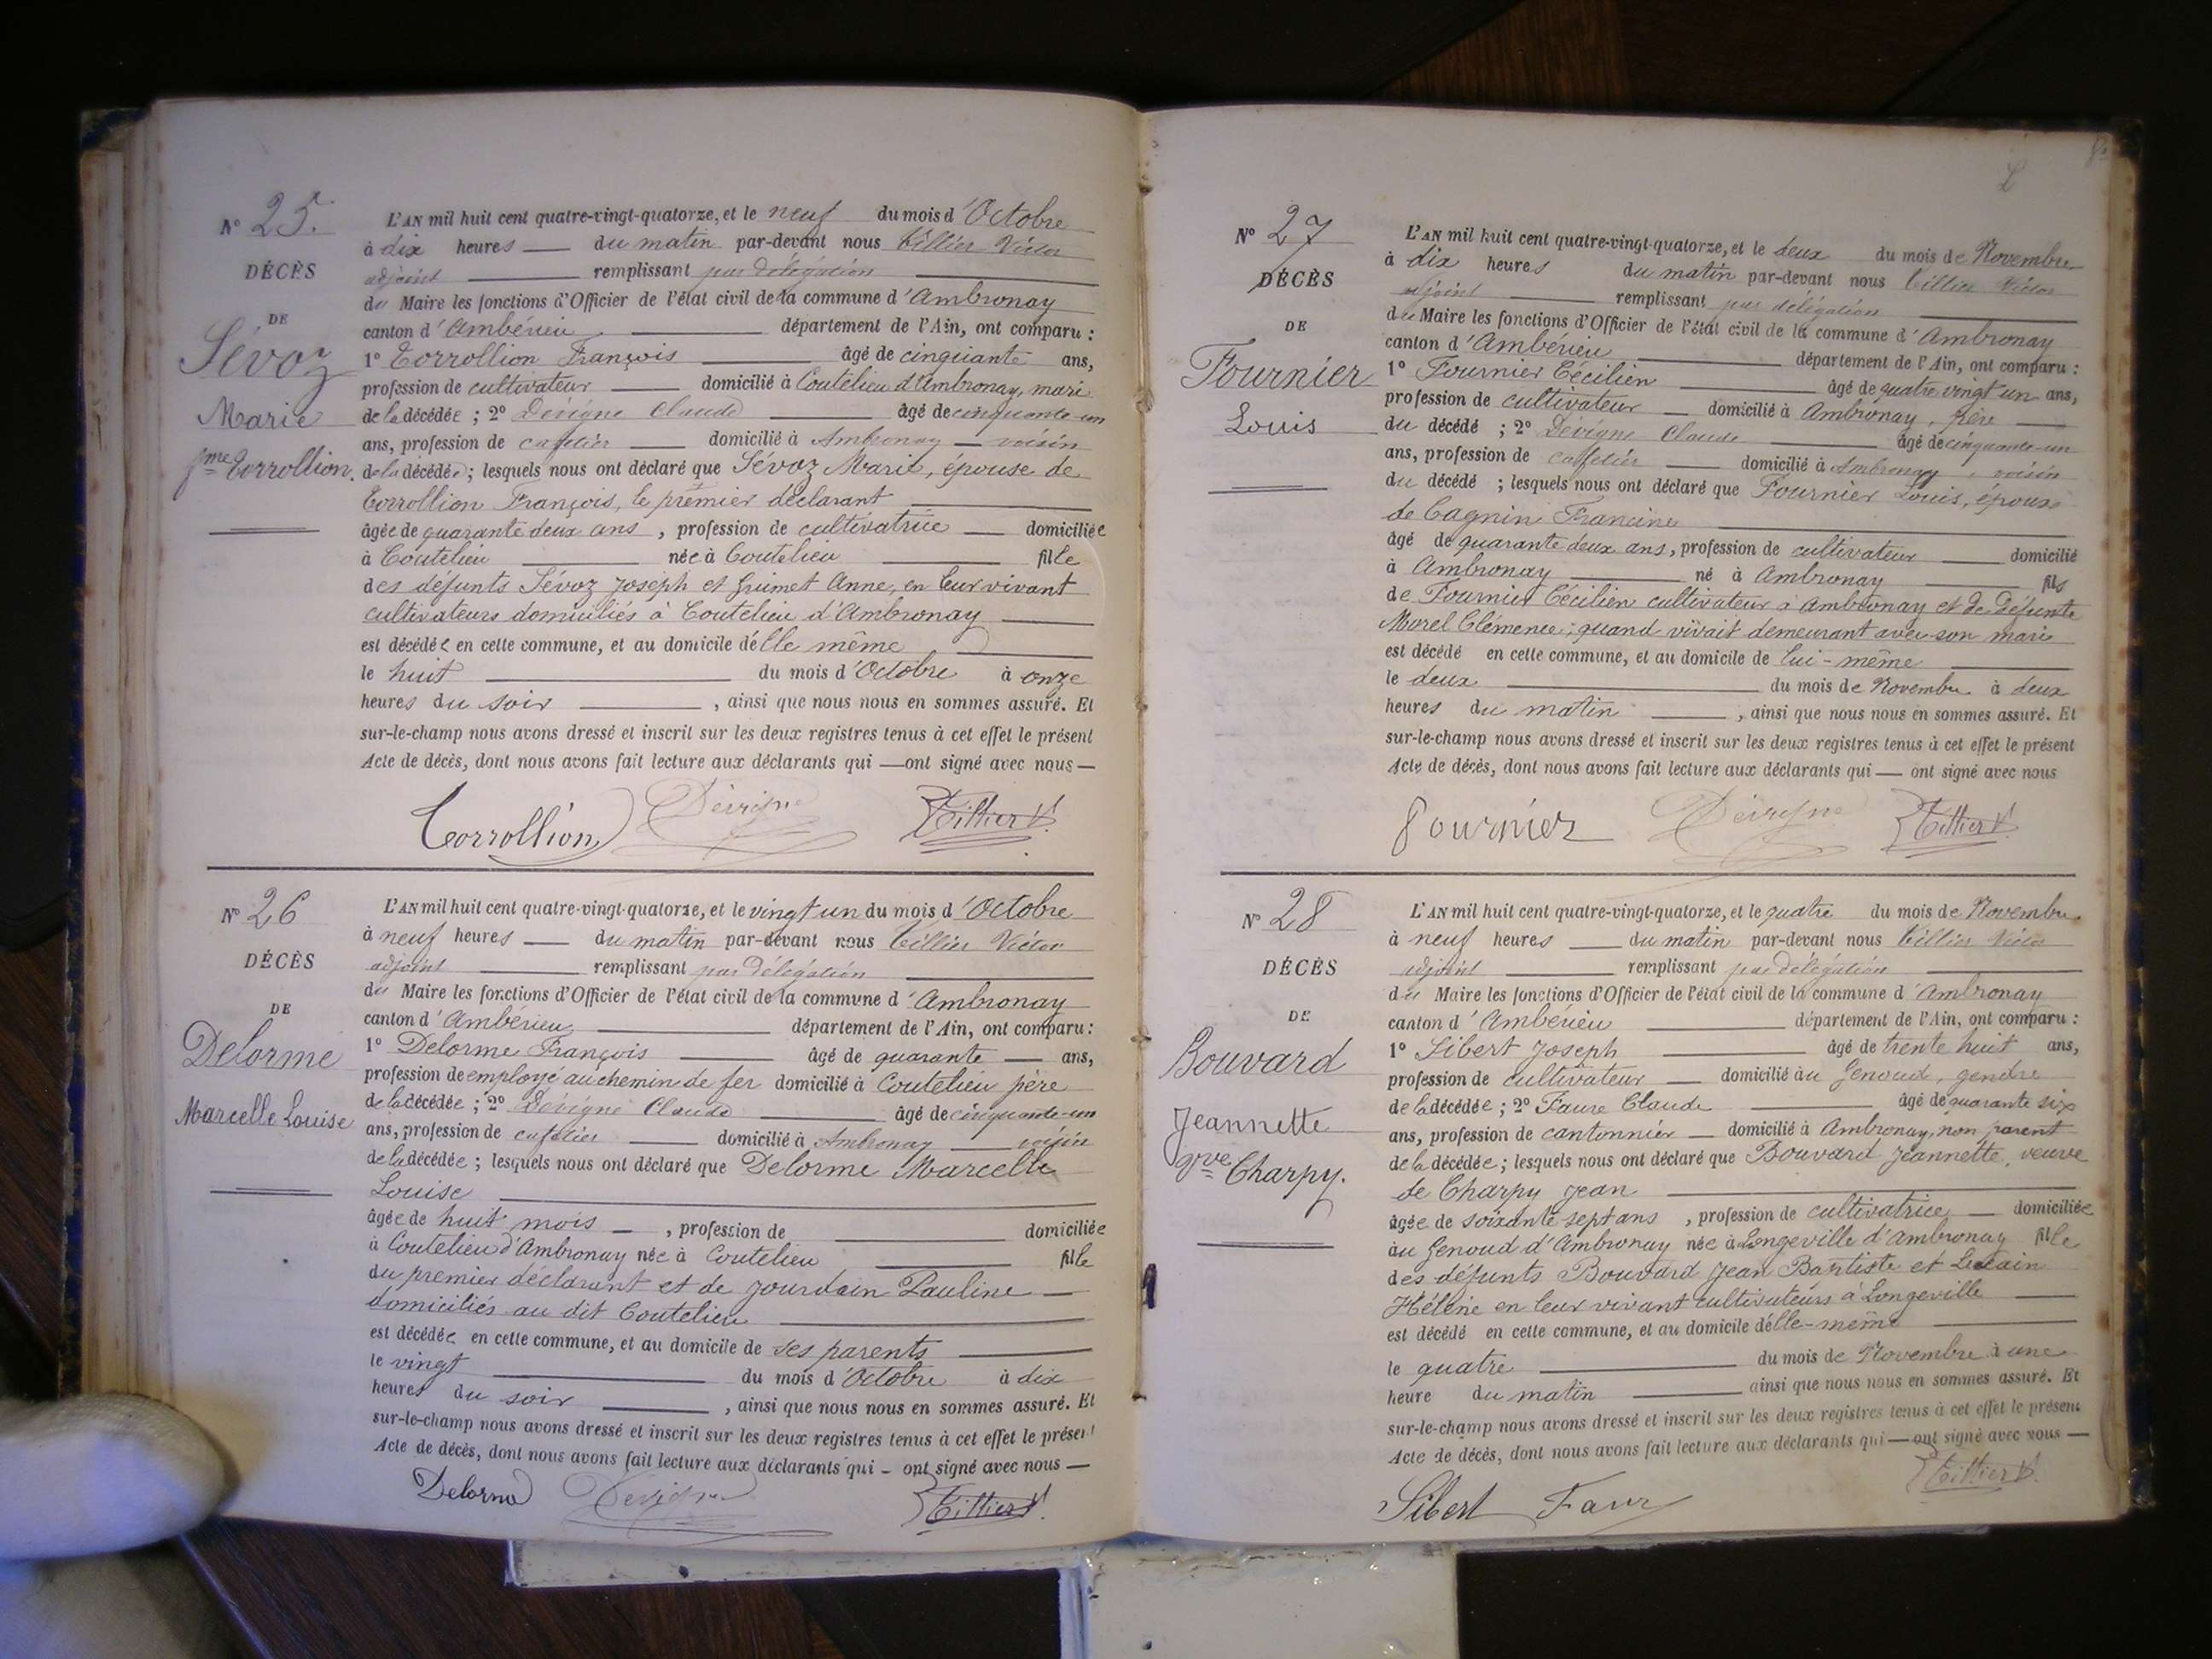 N° 25.
DÉCÈS
DE
Sévoz
Marie
fme Corrollion.
L'AN mil huit cent quatre-vingt-quatorze, et le neuf du mois d'Octobre
à dix heures du matin par-devant nous Tillier Victor
adjoint remplissant par délégation
du Maire les fonctions d'Officier de l'état civil de la commune d'Ambronay
canton d'Ambérieu département de l'Ain, ont comparu :
1° Corrollion François âgé de cinquante ans,
profession de cultivateur domicilié à Coutelieu d'Ambronay, mari
de la décédée ; 2° Dévigne Claude âgé de cinquante-un
ans, profession de cafetier domicilié à Ambronay voisin
de la décédée ; lesquels nous ont déclaré que Sévoz Marie, épouse de
Corrollion François, le premier déclarant
âgée de quarante deux ans, profession de cultivatrice domiciliée
à Coutelieu née à Coutelieu fille
des défunts Sévoz Joseph et Guimet Anne, en leur vivant
cultivateurs domiciliés à Coutelieu d'Ambronay
est décédée en cette commune, et au domicile d'elle même
le huit du mois d'Octobre à onze
heures du soir, ainsi que nous nous en sommes assuré. Et
sur-le-champ nous avons dressé et inscrit sur les deux registres tenus à cet effet le présent
Acte de décès, dont nous avons fait lecture aux déclarants qui — ont signé avec nous —
Corrollion Dévigne Tillier V.
N° 26
DÉCÈS
DE
Delorme
Marcelle Louise
L'AN mil huit cent quatre-vingt-quatorze, et le vingt un du mois d'Octobre
à neuf heures du matin par-devant nous Tillier Victor
adjoint remplissant par délégation
du Maire les fonctions d'Officier de l'état civil de la commune d'Ambronay
canton d'Ambérieu département de l'Ain, ont comparu :
1° Delorme François âgé de quarante ans,
profession de employé au chemin de fer domicilié à Coutelieu père
de la décédée ; 2° Dévigne Claude âgé de cinquante-un
ans, profession de cafetier domicilié à Ambronay voisin
de la décédée ; lesquels nous ont déclaré que Delorme Marcelle
Louise
âgée de huit mois, profession de domiciliée
à Coutelieu d'Ambronay née à Coutelieu fille
du premier déclarant et de Jourdain Pauline
domiciliés au dit Coutelieu
est décédée en cette commune, et au domicile de ses parents
le vingt du mois d'Octobre à dix
heures du soir, ainsi que nous nous en sommes assuré. Et
sur-le-champ nous avons dressé et inscrit sur les deux registres tenus à cet effet le présent
Acte de décès, dont nous avons fait lecture aux déclarants qui - ont signé avec nous —
Delorme Dévigne Tillier V.
N° 27
DÉCÈS
DE
Fournier
Louis
L'AN mil huit cent quatre-vingt-quatorze, et le deux du mois de Novembre
à dix heures du matin par-devant nous Tillier Victor
adjoint remplissant par délégation
du Maire les fonctions d'Officier de l'état civil de la commune d'Ambronay
canton d'Ambérieu département de l'Ain, ont comparu :
1° Fournier Cécilien âgé de quatre vingt un ans,
profession de cultivateur domicilié à Ambronay, père
du décédé ; 2° Dévigne Claude âgé de cinquante-un
ans, profession de cafetier domicilié à Ambronay, voisin
du décédé ; lesquels nous ont déclaré que Fournier Louis, époux
de Cagnin Francine
âgé de quarante deux ans, profession de cultivateur domicilié
à Ambronay né à Ambronay fils
de Fournier Cécilien cultivateur à Ambronay et de défunte
Morel Clémence ; quand vivait demeurant avec son mari
est décédé en cette commune, et au domicile de lui-même
le deux du mois de Novembre à deux
heures du matin, ainsi que nous nous en sommes assuré. Et
sur-le-champ nous avons dressé et inscrit sur les deux registres tenus à cet effet le présent
Acte de décès, dont nous avons fait lecture aux déclarants qui — ont signé avec nous
Fournier Dévigne Tillier V.
N° 28
DÉCÈS
DE
Bouvard
Jeannette
Vve Charpy.
L'AN mil huit cent quatre-vingt-quatorze, et le quatre du mois de Novembre
à neuf heures du matin par-devant nous Tillier Victor
adjoint remplissant par délégation
du Maire les fonctions d'Officier de l'état civil de la commune d'Ambronay
canton d'Ambérieu département de l'Ain, ont comparu :
1° Sibert Joseph âgé de trente huit ans,
profession de cultivateur domicilié au Genoud, gendre
de la décédée ; 2° Faure Claude âgé de quarante six
ans, profession de cantonnier domicilié à Ambronay, non parent
de la décédée ; lesquels nous ont déclaré que Bouvard Jeannette, veuve
de Charpy Jean
âgée de soixante sept ans, profession de cultivatrice domiciliée
au Genoud d'Ambronay née à Longeville d'Ambronay fille
des défunts Bouvard Jean Baptiste et
Hélène en leur vivant cultivateurs à Longeville
est décédé en cette commune, et au domicile d'elle-même
le quatre du mois de Novembre à une
heure du matin ainsi que nous nous en sommes assuré. Et
sur-le-champ nous avons dressé et inscrit sur les deux registres tenus à cet effet le présent
Acte de décès, dont nous avons fait lecture aux déclarants qui — ont signé avec nous —
Sibert Faure Tillier V.